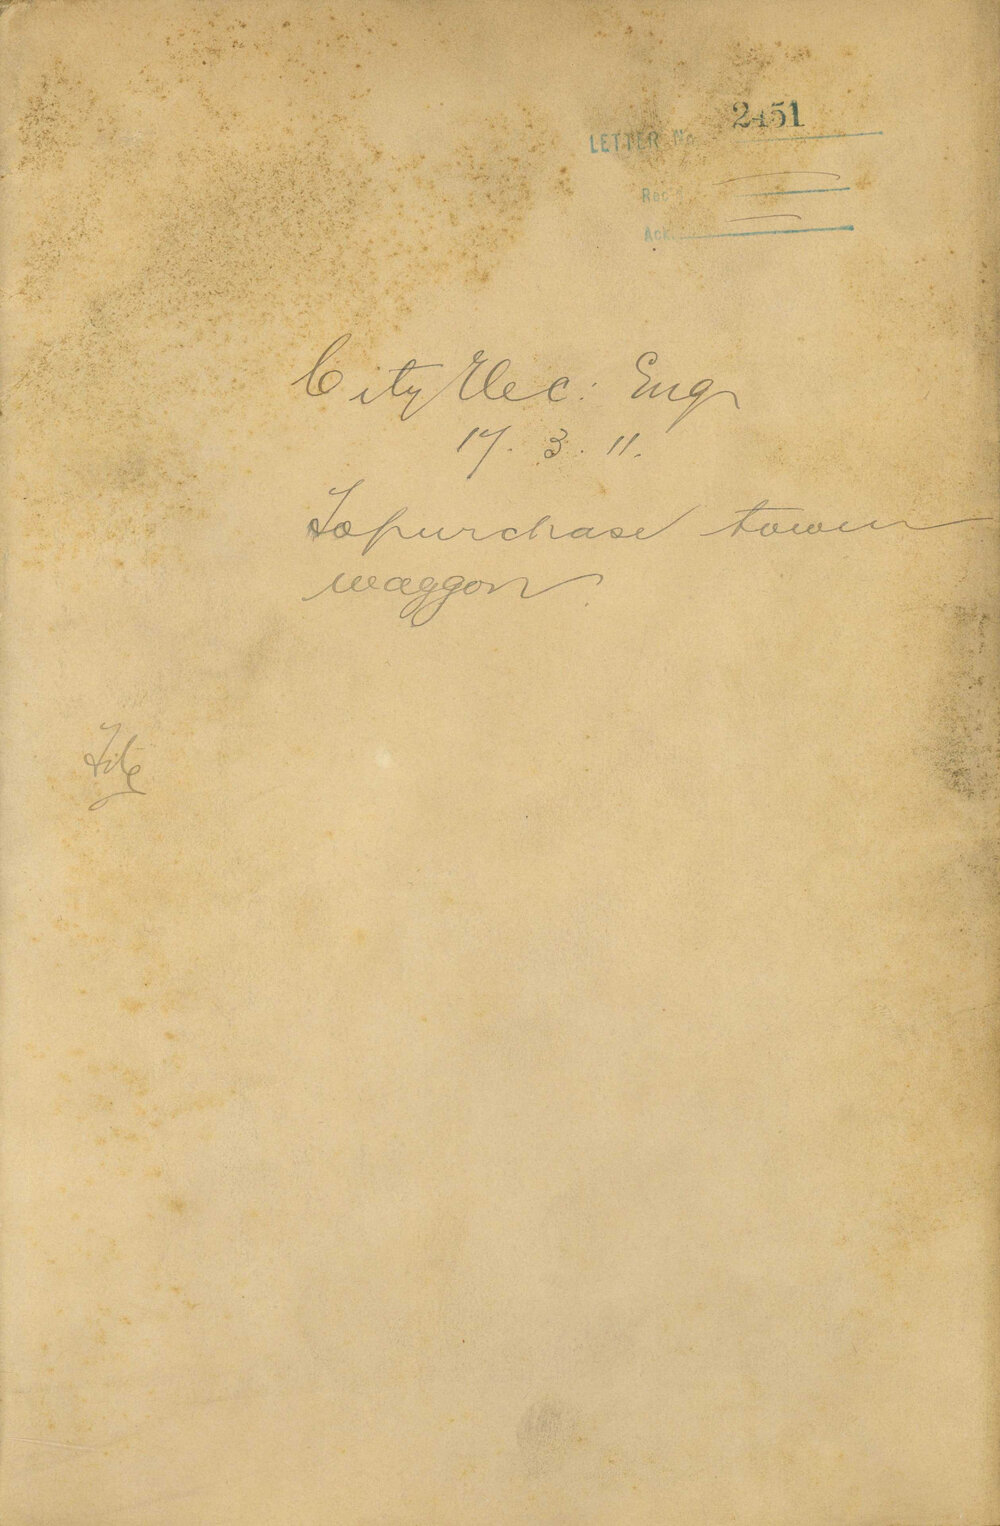 LETTER No 2451
Rec'd
Ack.
City Elec: Engr
17. 3. 11.
To purchase tower
waggon
File